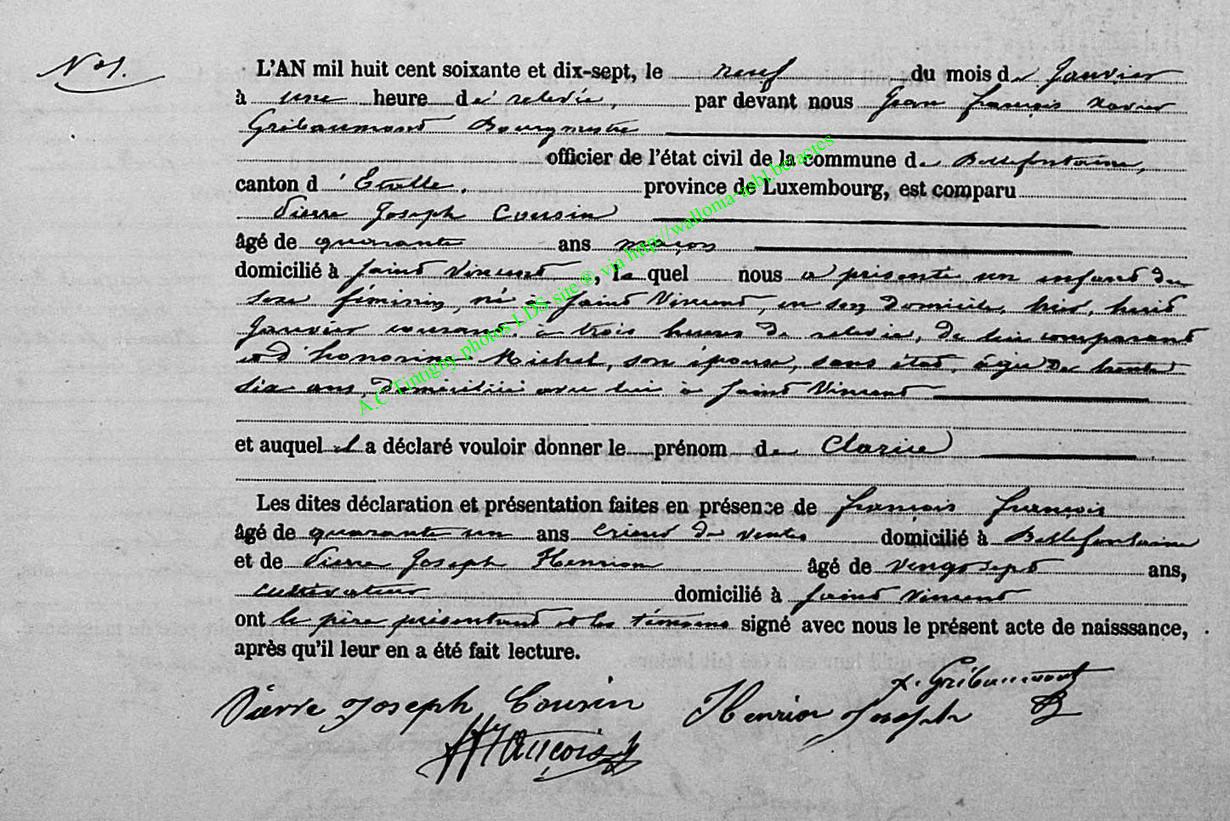 N° 1.
L'AN mil huit cent soixante et dix-sept, le neuf du mois de Janvier
à une heure de relevée, par devant nous Jean françois xavier
Gribaumont Bourgmestre
officier de l'état civil de la commune de Bellefontaine,
canton d'Etalle, province de Luxembourg, est comparu
Pierre Joseph Cousin
âgé de quarante ans maçon
domicilié à Saint Vincent, le quel nous a présenté un enfant du
sexe féminin, né à Saint Vincent, en son domicile, hier, huit
Janvier courant, à trois heures de relevée, de lui comparant
et d'honorine Michel, son épouse, sans état, âgée de trente
six ans, domiciliée avec lui à Saint Vincent
et auquel il a déclaré vouloir donner le prénom de Clarice
Les dites déclaration et présentation faites en présence de françois françois
âgé de quarante un ans crieur de ventes domicilié à Bellefontaine
et de Pierre Joseph Henrion âgé de vingt sept ans,
cultivateur domicilié à Saint Vincent
ont le père présentant et les témoins signé avec nous le présent acte de naisssance,
après qu'il leur en a été fait lecture.
X. Gribaumont
Pierre Joseph Cousin Henrion Joseph
françois
A.C Tintigny photos LDS site ® via http://walloma-lubl.be/actes